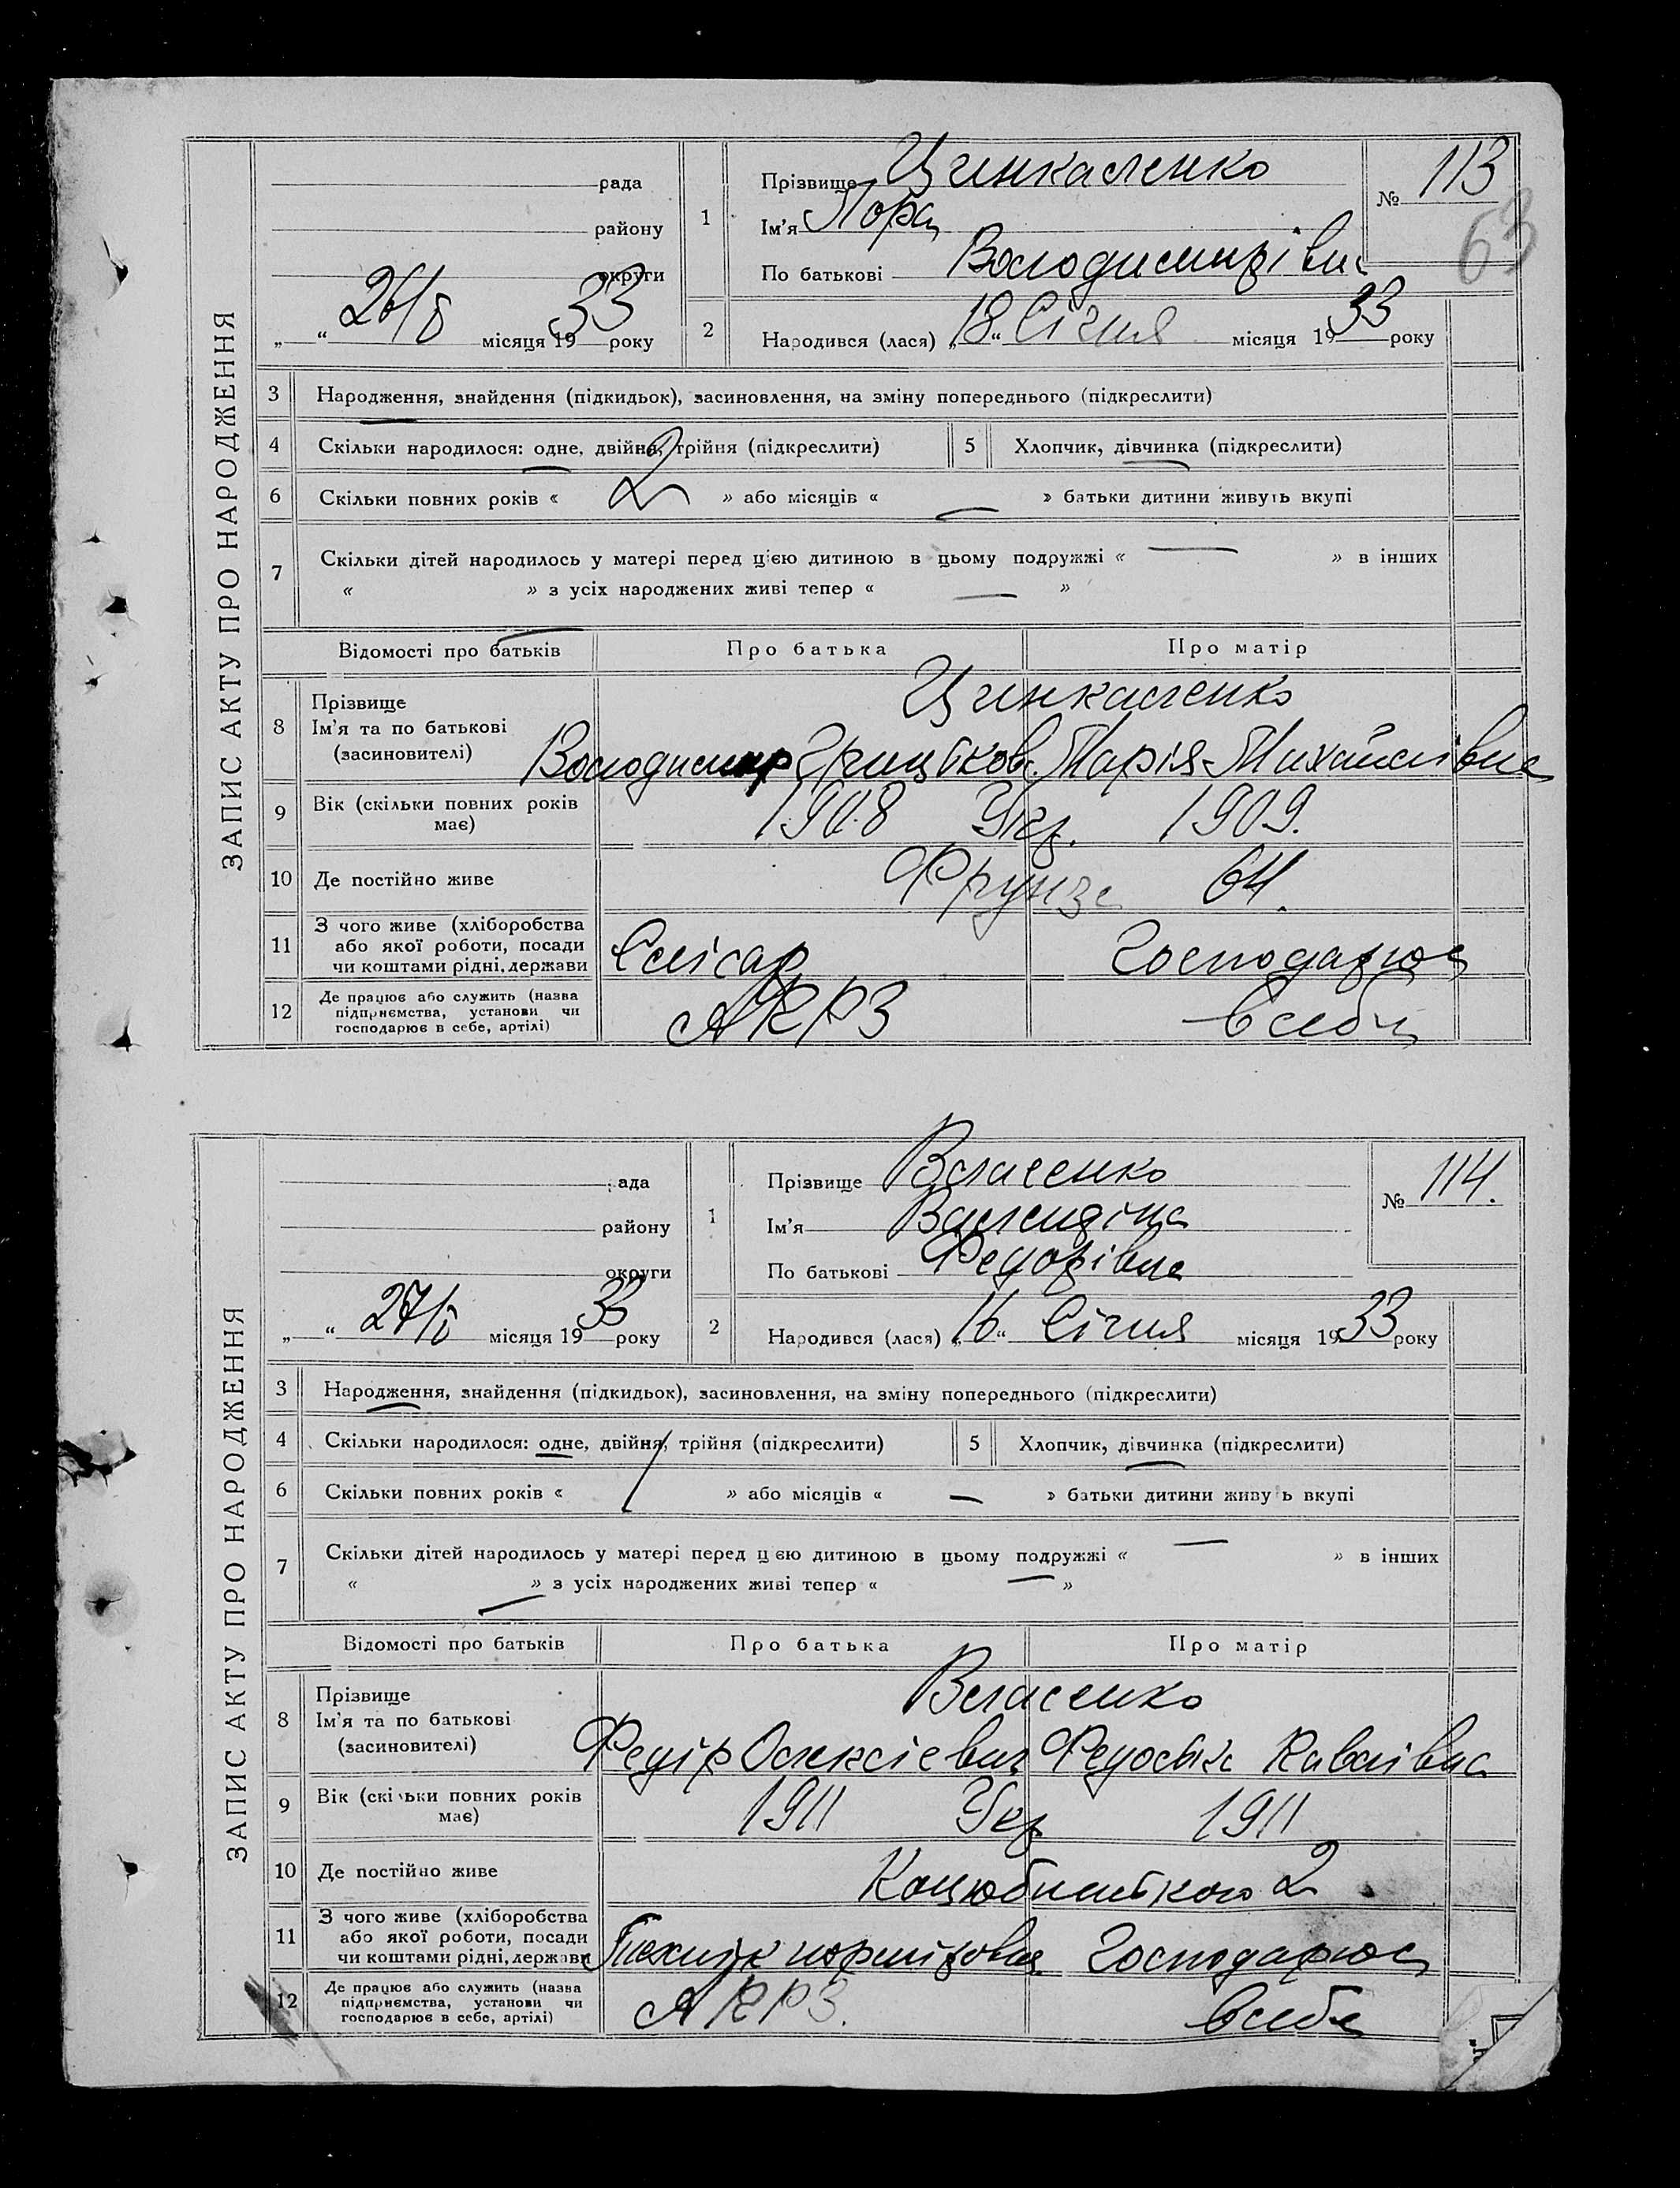 ЗАПИС АКТУ ПРО НАРОДЖЕННЯ
рада
району
округи
„ “ 26/I місяця 1933 року
1
Прізвище Цинкаленко
Ім'я Лора
По батькові Володимирівна
№ 113
63
2
Народився (лася) „18“ Січня місяця 1933 року
3 Народження, знайдення (підкидьок), засиновлення, на зміну попереднього (підкреслити)
4 Скільки народилося: одне, двійня, трійня (підкреслити)
5 Хлопчик, дівчинка (підкреслити)
6 Скільки повних років « 2 » або місяців « — » батьки дитини живуть вкупі
7 Скільки дітей народилось у матері перед цією дитиною в цьому подружжі « — » в інших
« — » з усіх народжених живі тепер « — »
Відомості про батьків Про батька Про матір
8 Прізвище
Ім'я та по батькові
(засиновителі)
Цинкаленко
Володимир Грицьков. Марія Михайлівна
9 Вік (скільки повних років має) 1908 Укр. 1909.
10 Де постійно живе Фрунзе 64.
11 З чого живе (хліборобства
або якої роботи, посади
чи коштами рідні, держави
Слісар Господарює
12 Де працює або служить (назва
підприємства, установи чи
господарює в себе, артілі)
АРРЗ в себе
ЗАПИС АКТУ ПРО НАРОДЖЕННЯ
рада
району
округи
„ “ 27/I місяця 1933 року
1
Прізвище Власенко
Ім'я Валендіна
По батькові Федорівна
№ 114.
2
Народився (лася) „16“ Січня місяця 1933 року
3 Народження, знайдення (підкидьок), засиновлення, на зміну попереднього (підкреслити)
4 Скільки народилося: одне, двійня, трійня (підкреслити)
5 Хлопчик, дівчинка (підкреслити)
6 Скільки повних років « 1 » або місяців « — » батьки дитини живуть вкупі
7 Скільки дітей народилось у матері перед цією дитиною в цьому подружжі « — » в інших
« — » з усіх народжених живі тепер « — »
Відомості про батьків Про батька Про матір
8 Прізвище
Ім'я та по батькові
(засиновителі)
Власенко
Федір Олексієвич Федоська
9 Вік (скільки повних років має) 1911 Укр 1911
10 Де постійно живе Коцюбинського 2
11 З чого живе (хліборобства
або якої роботи, посади
чи коштами рідні, держави
Технік Господарює
12 Де працює або служить (назва
підприємства, установи чи
господарює в себе, артілі)
АРРЗ. в себе